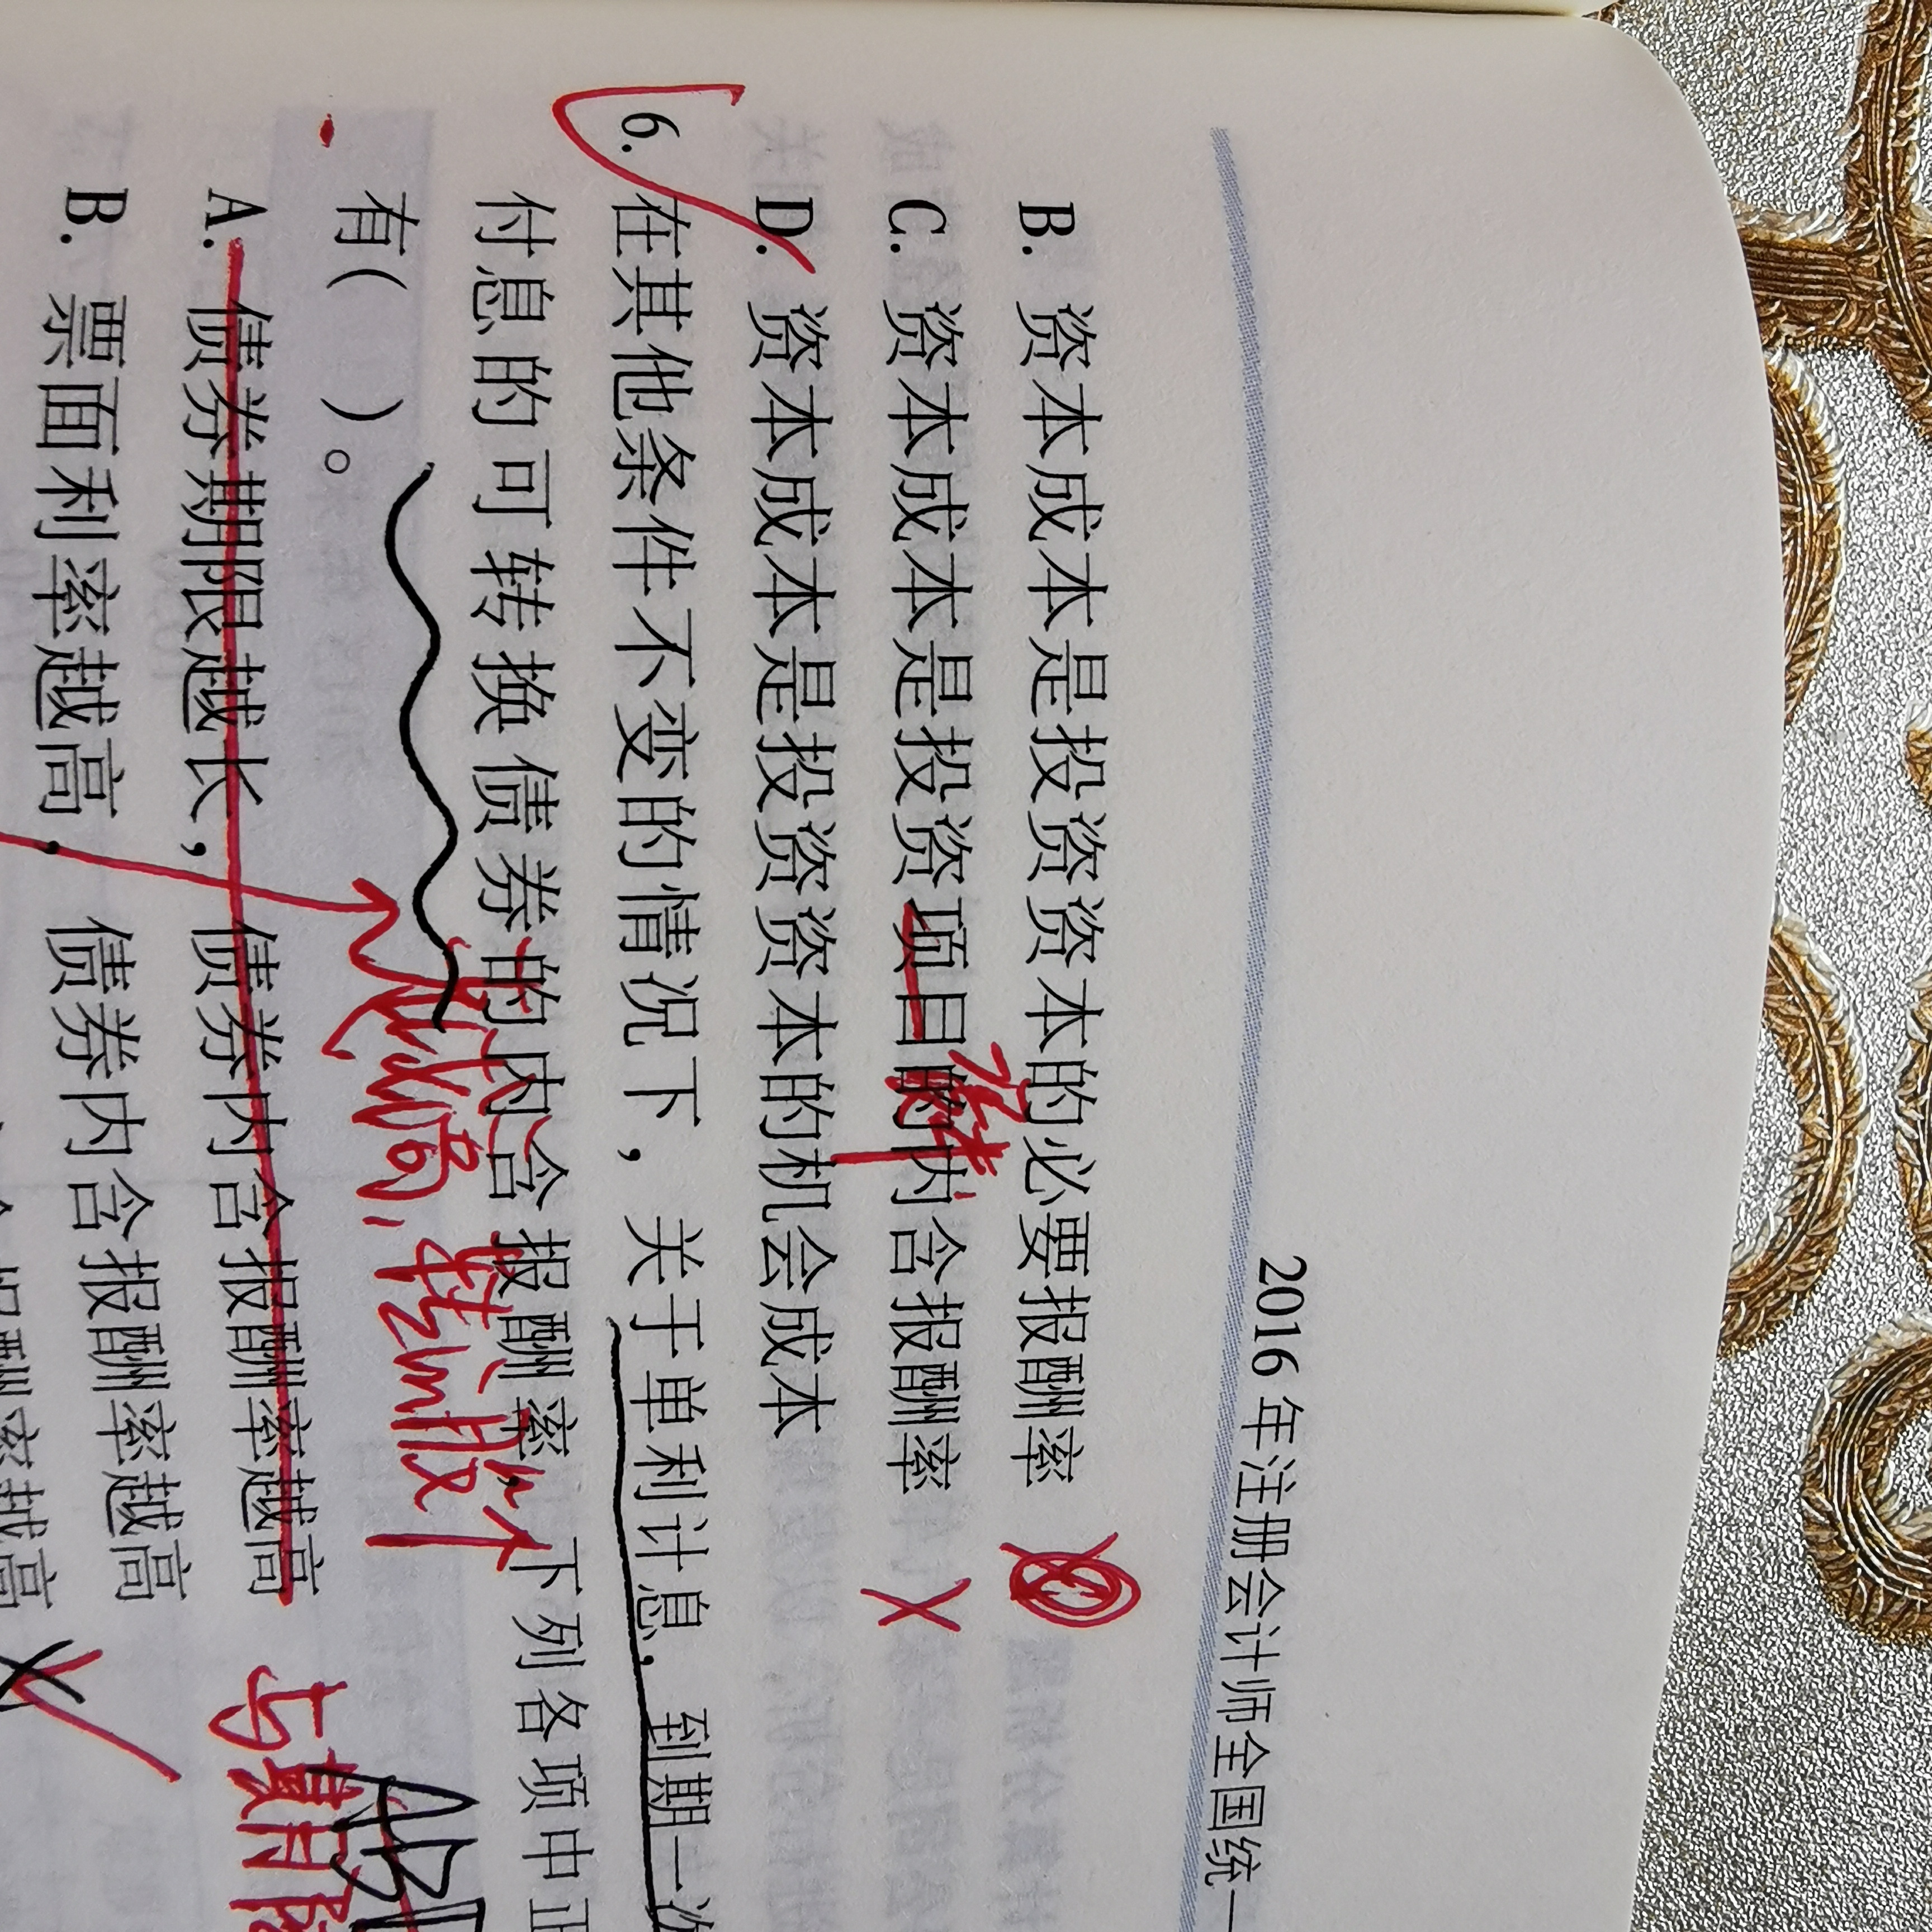 2016 年注册会计师全国统一
B. 资本成本是投资资本的必要报酬率
C. 资本成本是投资项目的内含报酬率
D. 资本成本是投资资本的机会成本
6. 在其他条件不变的情况下，关于单利计息，到期一次
付息的可转换债券的内含报酬率，下列各项中正
有( )。
A. 债券期限越长，债券内含报酬率越高
与期限
B. 票面利率越高，债券内含报酬率越高